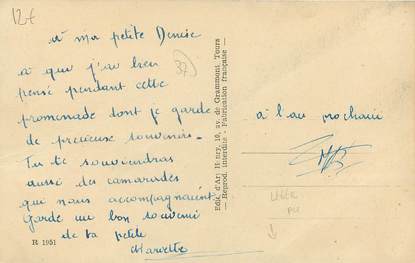 12€
à ma petite Denise
à qui j'ai bien
pensé pendant cette
promenade dont je garde
de precieuse souvenirs.
Tu te souviendras
aussi des camarades
qui nous accompagnaient
Garde un bon souvenir
de ta petite
Marcelle
R 1951
37
Edit. d'Art Henry, 10, av. de Grammont, Tours
— Reprod. interdite - Fabrication française —
à l'an prochain